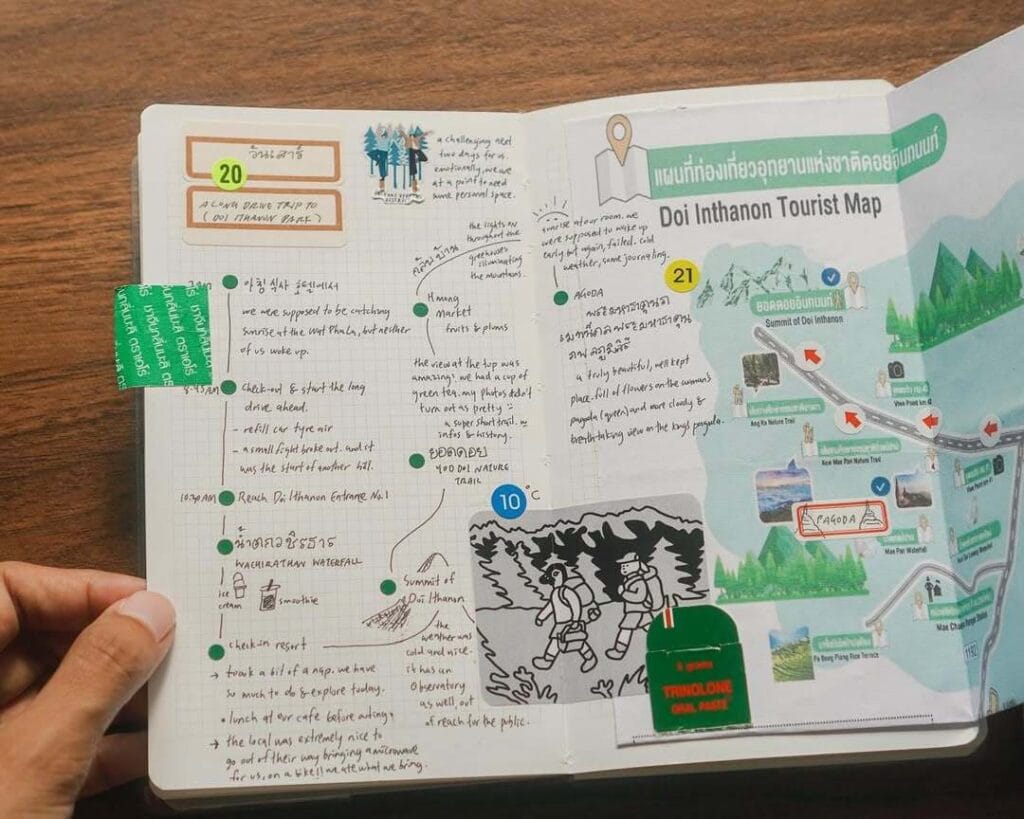 วันเสาร์
20
A LONG DRIVE TRIP TO
(DOI ITHANON PARK)
a challenging next
two days for us.
emotionally, we
at a point to need
some personal space.
아침식사 호텔에서
we were supposed to be catching
sunrise at the Wat Phala, but neither
of us woke up.
8:45 AM
Check-out & start the long
drive ahead.
- refill car tyre air
- a small fight broke out. and it
was the start of another hill.
10:30 AM Reach Doi Ithanon Entrance No.1
น้ำตกวชิรธาร
WACHIRATHAN WATERFALL
ice
cream
smoothie
check-in resort
→ took a bit of a nap. we have
so much to do & explore today.
• lunch at our cafe before outing.
→ the local was extremely nice to
go out of their way bringing a microwave
for us, on a bike!! we ate what we bring.
the lights on
throughout the
greenhouses
illuminating
the mountains.
กลับบ้าน
Hmong
Market
fruits & plums
the view at the top was
amazing! we had a cup of
green tea. my photos didn't
turn out as pretty
a super short trail.
infos & history.
ยอดดอย
YOD DOI NATURE
TRAIL
Summit of
Doi Ithanon
the
weather was
cold and nice.
it has an
Observatory
as well, out
of reach for the public.
sunrise at our room. we
were supposed to wake up
early but again, failed. cold
weather, some journaling.
21
PAGODA
พระมหาธาตุนภ
เมทนีดล พระมหาธาตุนภ
พลภูมิสิริ
a truly beautiful, well kept
place. full of flowers on the womans
pagoda (green) and more cloudy &
breathtaking view on the kings pagoda.
10 °C
3 grams
TRINOLONE
ORAL PASTE
แผนที่ท่องเที่ยวอุทยานแห่งชาติดอยอินทนนท์
Doi Inthanon Tourist Map
ยอดดอยอินทนนท์
Summit of Doi Inthanon
Ang Ka Nature Trail
View Point km.42
Kew Mae Pan Nature Trail
View Point km.41
PAGODA
Mae Pan Waterfall
Pa Bong Piang Rice Terrace
1192